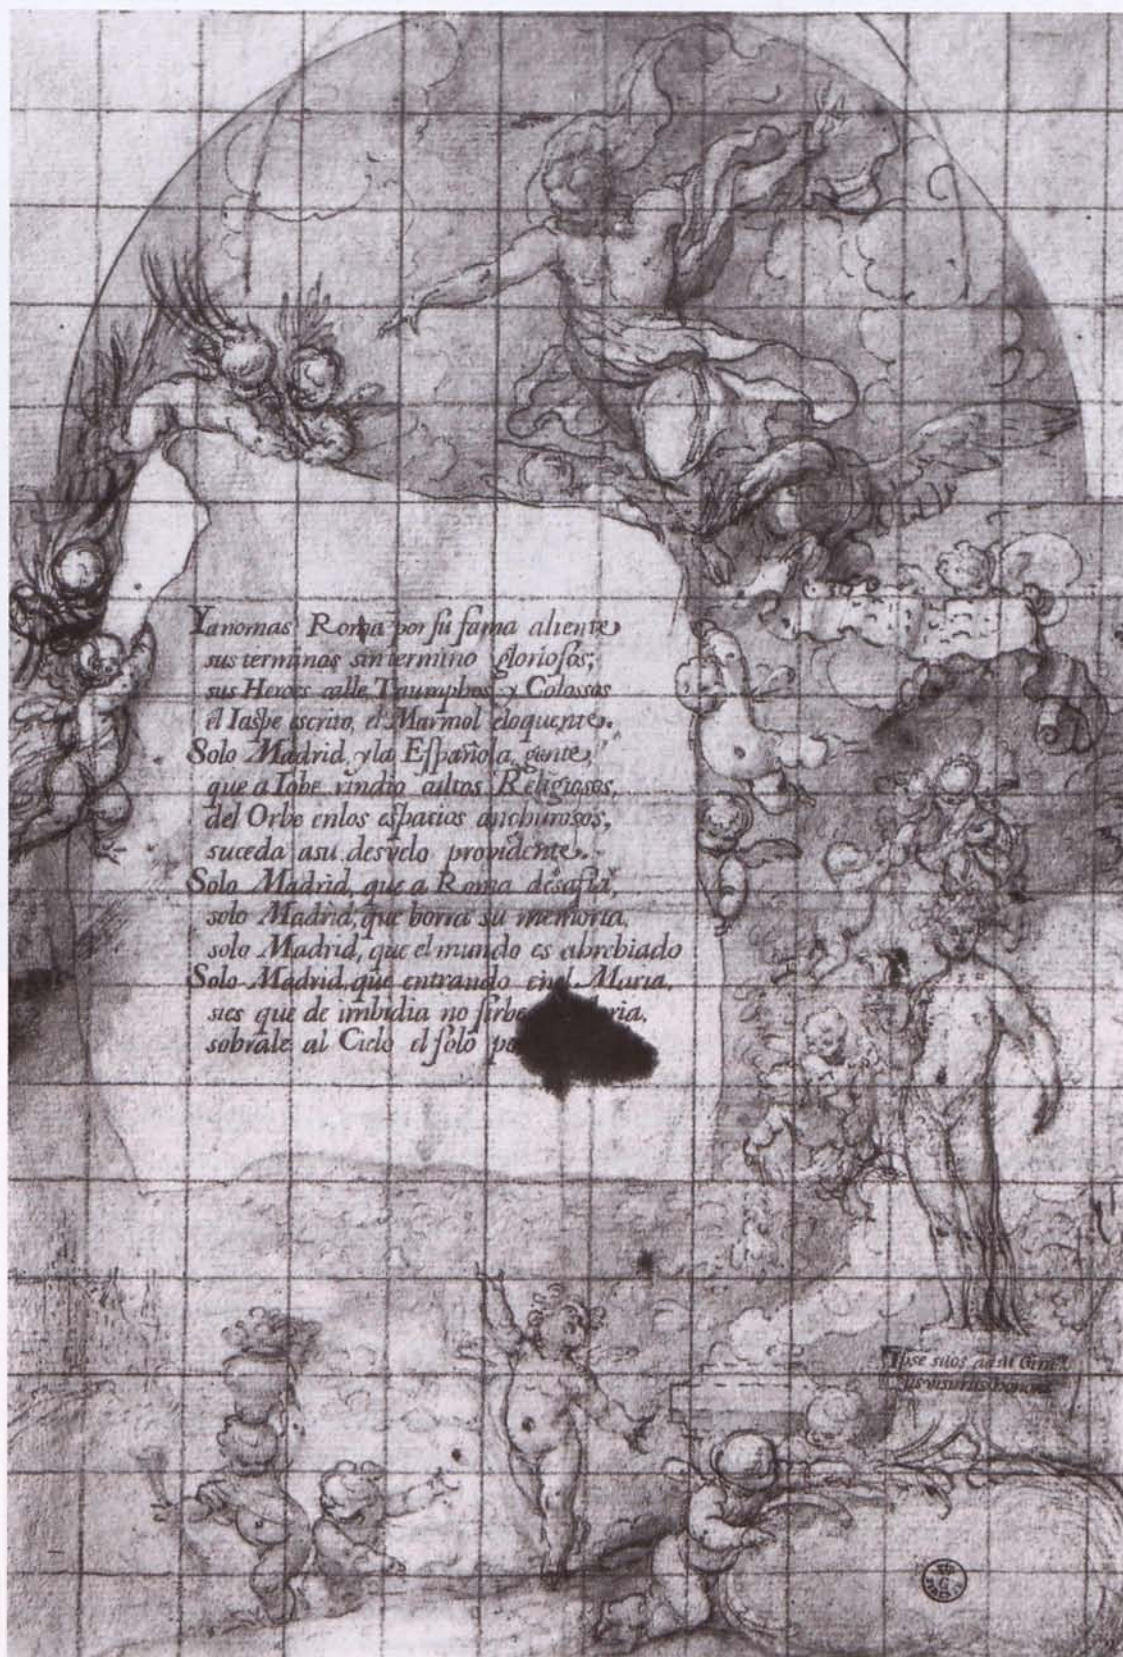 Yanomas Roma por su fama aliente
sus terminos sin termino gloriosos;
sus Heroes calle, Triumphos y Colossos
el Iaspe escrito, el Marmol eloquente.
Solo Madrid, y la Española gente,
que a Iobe rindio cultos Religiosos,
del Orbe enlos espacios anchurosos,
suceda asu desvelo providente.
Solo Madrid, que a Roma desafia,
solo Madrid, que borra su memoria,
solo Madrid, que el mundo es abrebiado
Solo Madrid, que entrando en el Maria,
sies que de imbidia no sirbe
sobrale al Cielo el solo
Ipse suos